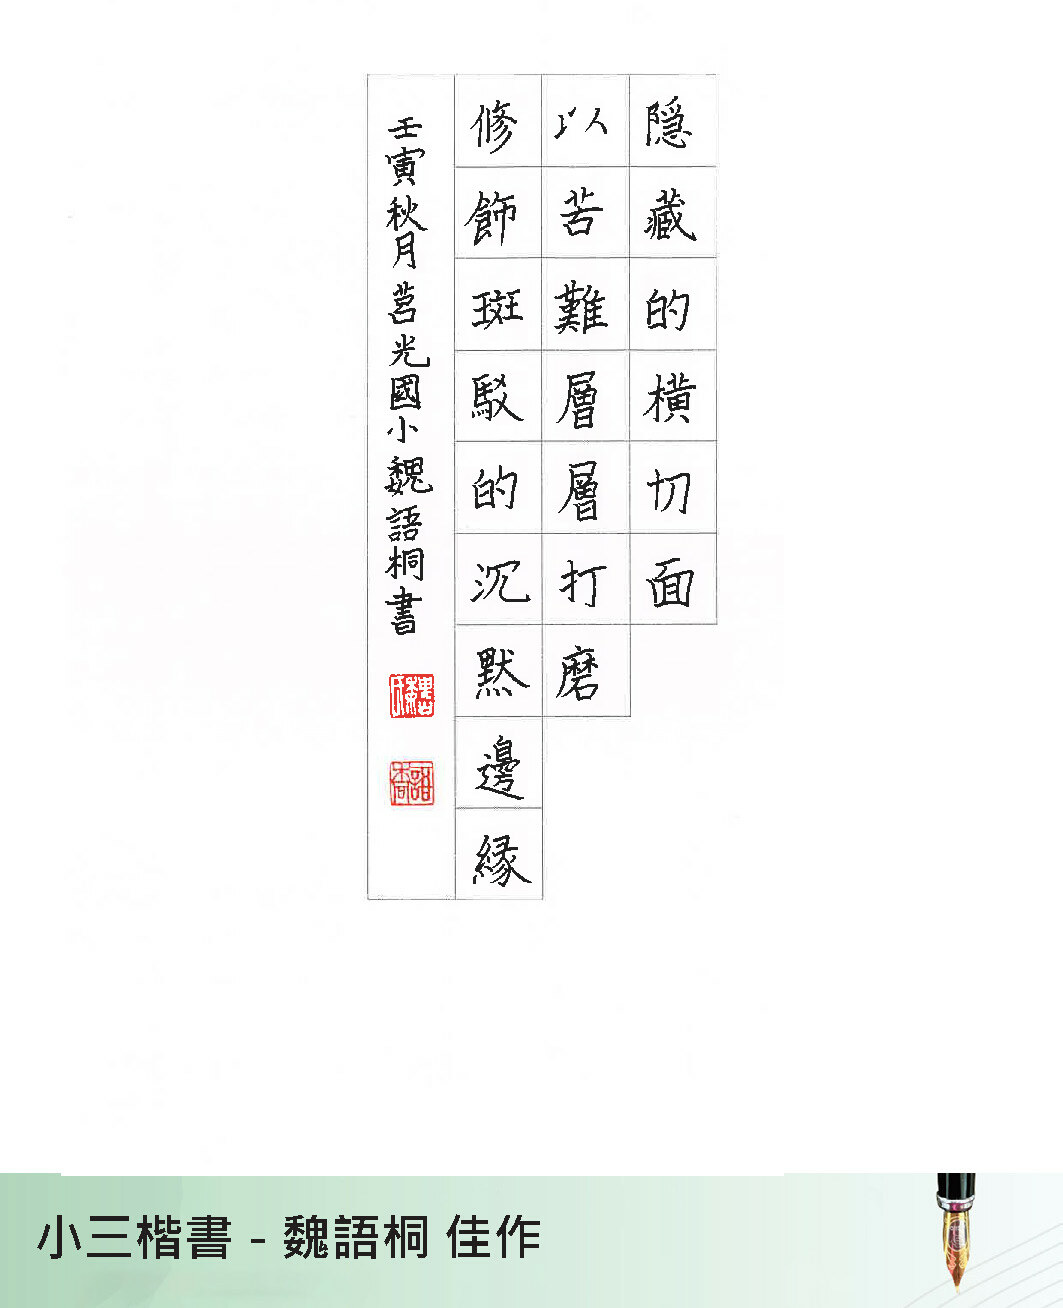 隱藏的橫切面
以苦難層層打磨
修飾斑駁的沉默邊緣
壬寅秋月莒光國小魏語桐書
魏氏
語桐
小三楷書 - 魏語桐 佳作